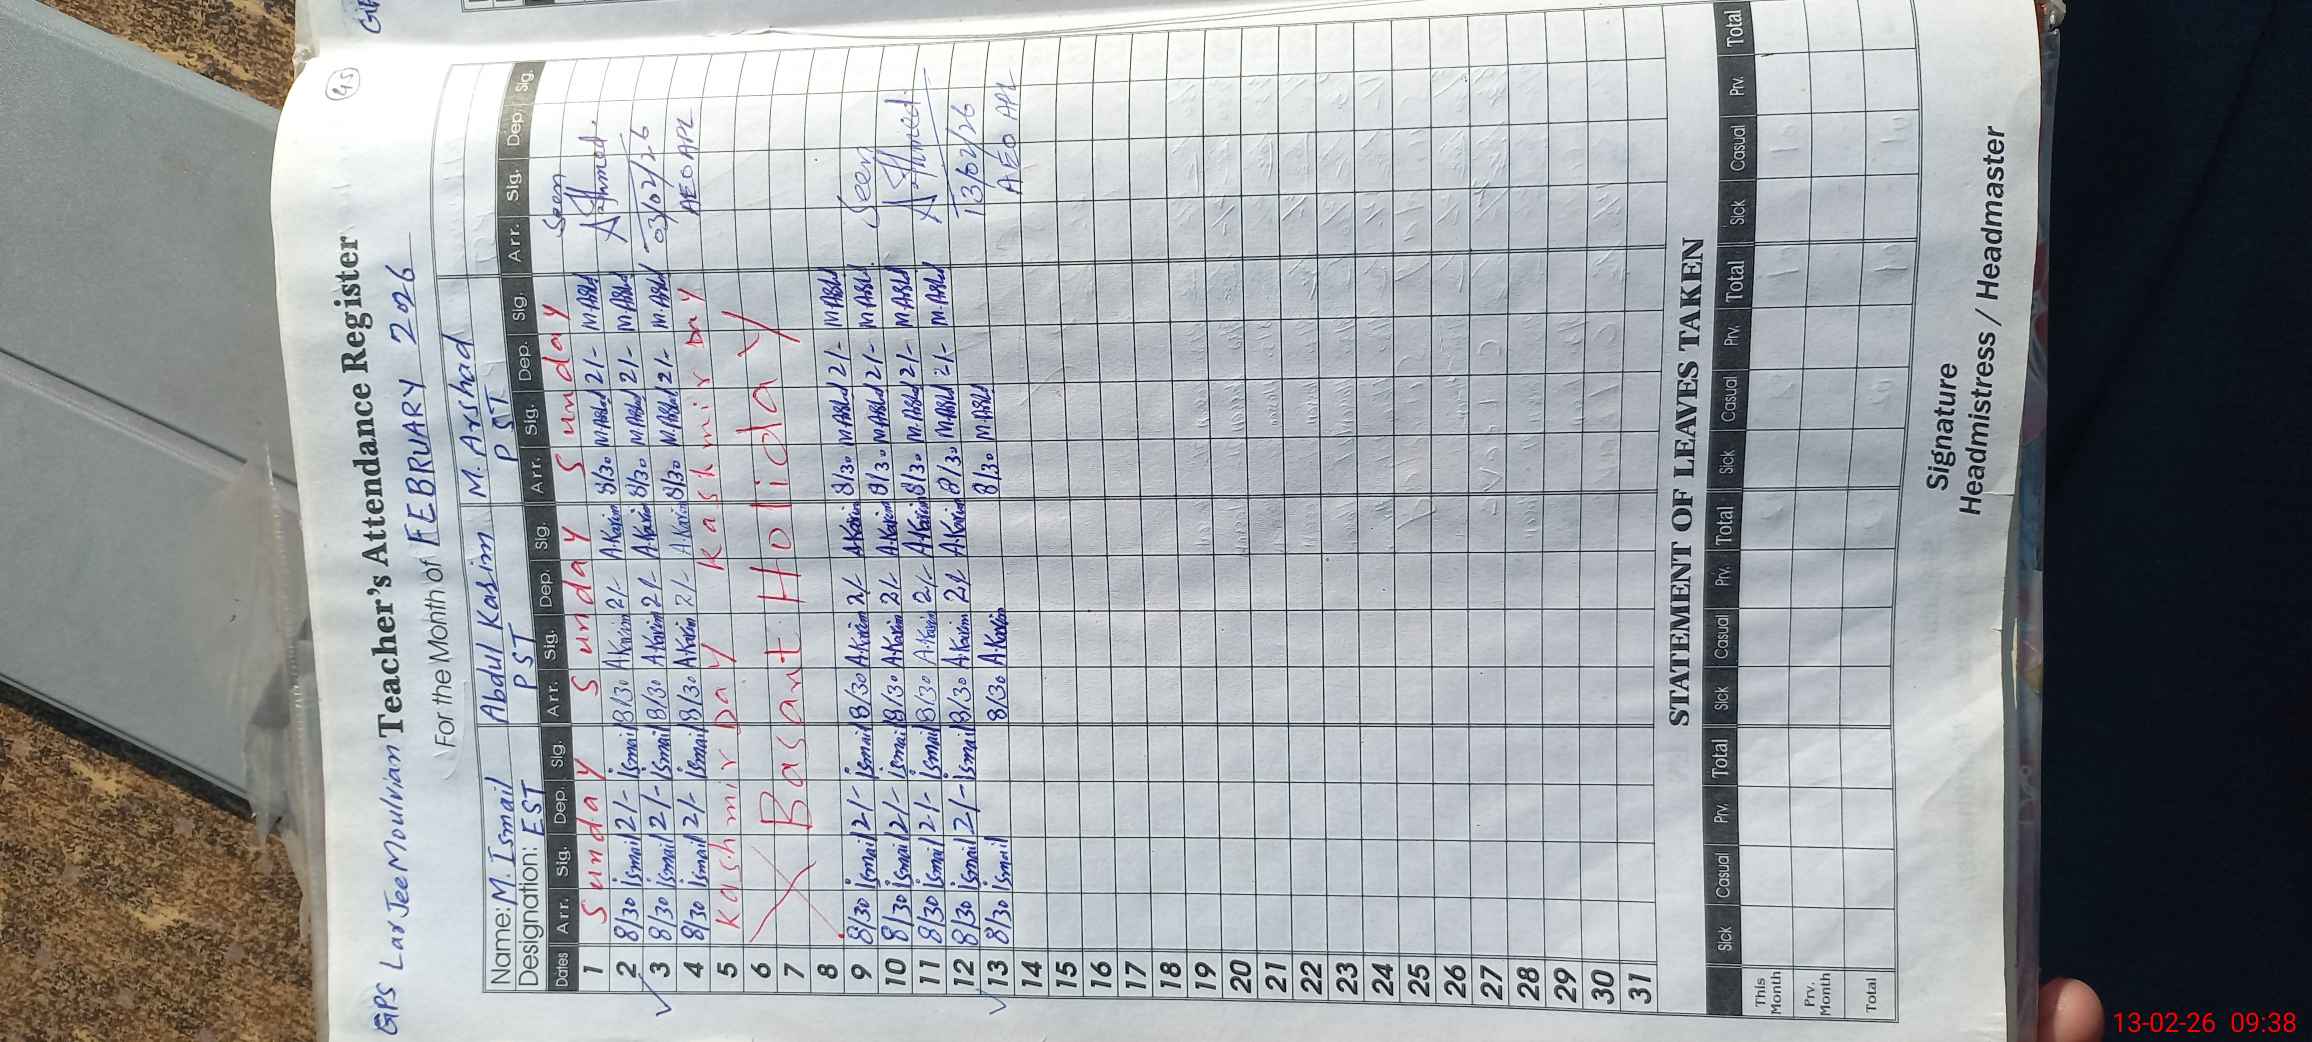 45
GPS Lar Jee Moulvian Teacher's Attendance Register
For the Month of FEBRUARY 2026
Name: M. Ismail Abdul Kasim M. Arshad
Designation: EST PST PST
Dates Arr. Sig. Dep. Sig. Arr. Sig. Dep. Sig. Arr. Sig. Dep. Sig. Arr. Sig. Dep. Sig.
1 Sunday Sunday Sunday Seen
2 8/30 Ismail 2/- Ismail 8/30 A.Karim 2/- A.Karim 8/30 M.Arshd 2/- M.Arshd
3 8/30 Ismail 2/- Ismail 8/30 A.Karim 2/- A.Karim 8/30 M.Arshd 2/- M.Arshd 03/02/26
4 8/30 Ismail 2/- Ismail 8/30 A.Karim 2/- A.Karim 8/30 M.Arshd 2/- M.Arshd AEO APL
5 Kashmir Day Kashmir Day
6
7 Basant Holiday
8
9 8/30 Ismail 2/- Ismail 8/30 A.Karim 2/- A.Karim 8/30 M.Arshd 2/- M.Arshd Seen
10 8/30 Ismail 2/- Ismail 8/30 A.Karim 2/- A.Karim 8/30 M.Arshd 2/- M.Arshd
11 8/30 Ismail 2/- Ismail 8/30 A.Karim 2/- A.Karim 8/30 M.Arshd 2/- M.Arshd
12 8/30 Ismail 2/- Ismail 8/30 A.Karim 2/- A.Karim 8/30 M.Arshd 2/- M.Arshd 13/02/26
13 8/30 Ismail 8/30 A.Karim 8/30 M.Arshd AEO APL
14
15
16
17
18
19
20
21
22
23
24
25
26
27
28
29
30
31
STATEMENT OF LEAVES TAKEN
Sick Casual Prv. Total Sick Casual Prv. Total Sick Casual Prv. Total Sick Casual Prv. Total
This Month
Prv. Month
Total
Signature
Headmistress / Headmaster
13-02-26 09:38